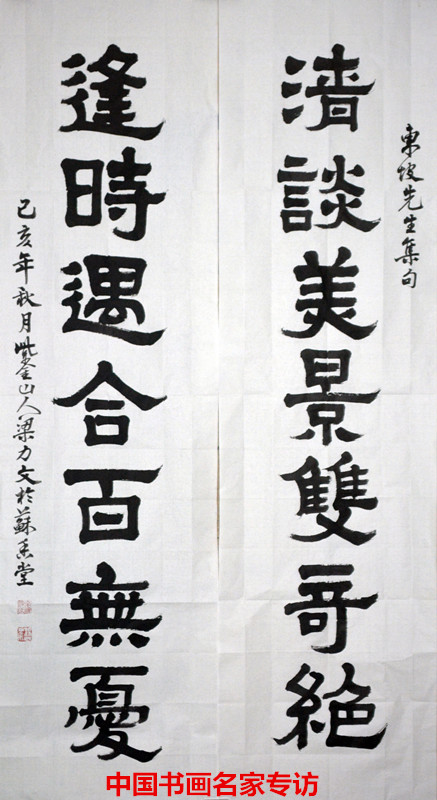 東坡先生集句
清談美景雙奇絕
逢時遇合百無憂
己亥年秋月紫金山人梁力文於蘇香堂
中国书画名家专访